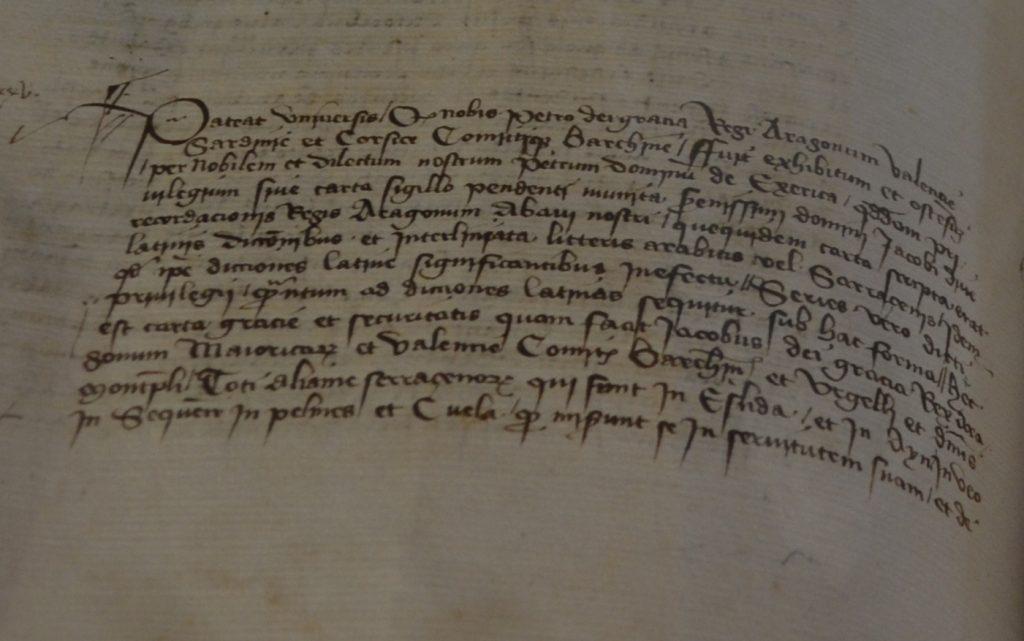 xxv.
Pateat Universis / Q nobis Petro dei gracia Rege Aragonum Valencie
Sardinie et Corsice Comitiqz Barchinone / ffuit exhibitum et ostensum
/ per Nobilem et dilectum nostrum Petrum dominum de Exerica / quoddam pri
vilegium sive carta sigillo pendenti munita Serenissimi domini Jacobi dive
recordacionis Regis Aragonum Abavi nostri / quequidem carta scripta erat
latinis diccionibus et Interliniata litteris arabicis vel Sarracenis / Idem
qd ipe dicciones latine significantibus in efectu // Series vero dicti
privilegii / quantum ad dicciones latinas sequitur sub hac forma // Hec
est carta gracie et securitatis quam facit Jacobus dei gracia Rex Ara
gonum Maioricarum et Valencie Comes Barchinone et Urgelli et dominus
Montpli / Toti aliame serracenorum qui sunt in Eslida / et in Ayn / in Veo
in Senquer in pelmes et Cuela / qui miserunt se in servitutem suam / et de